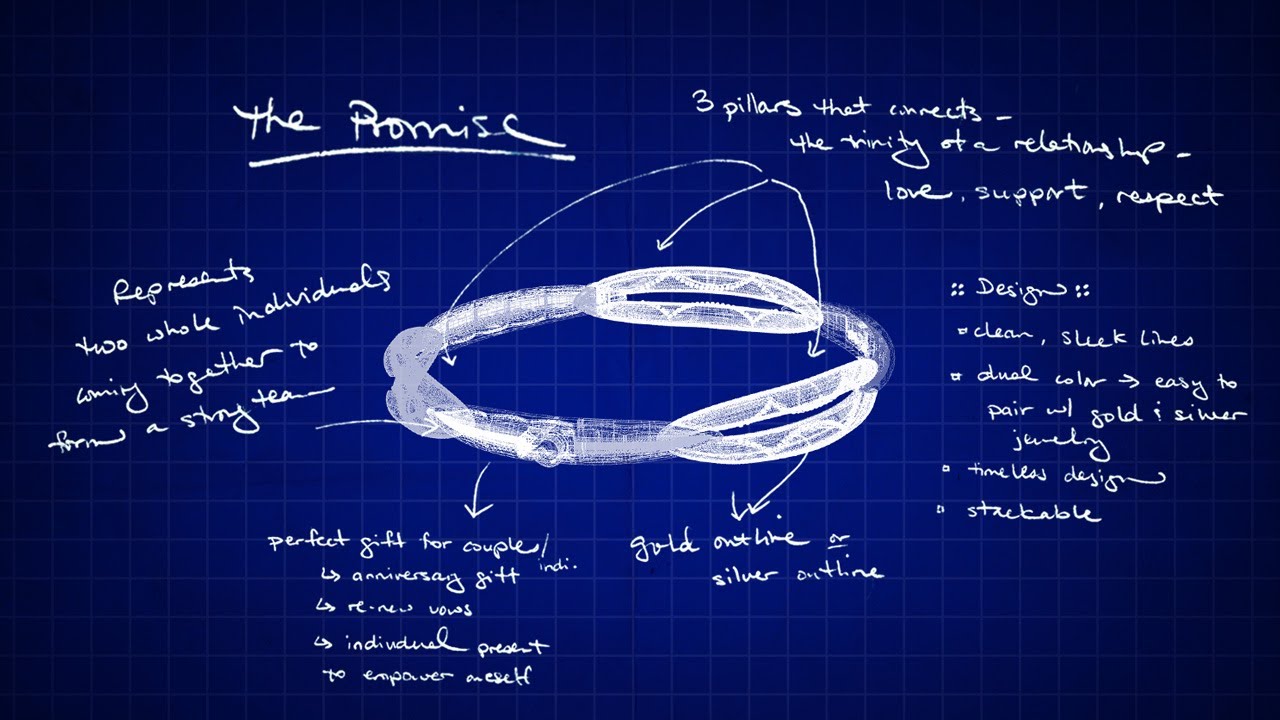 The Promise
3 pillars that connects -
the trinity of a relationship -
love, support, respect
Represents
two whole individuals
coming together to
form a strong team
:: Design ::
clean, sleek lines
dual color → easy to
pair w/ gold & silver
jewelry
timeless design
stackable
perfect gift for couples/
indi.
↳ anniversary gift
↳ re-new vows
↳ individual present
to empower oneself
gold outline or
silver outline